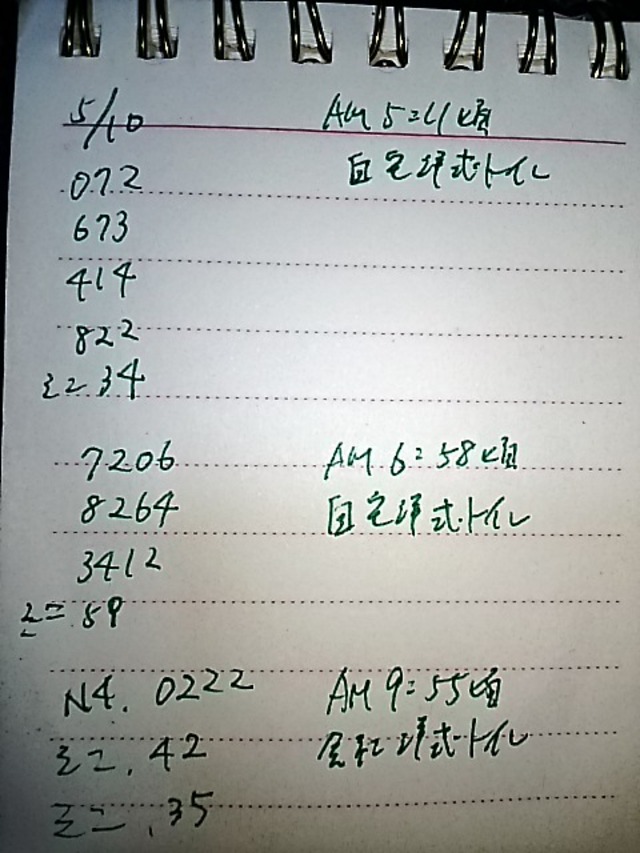 5/10 AM 5:41頃
072 自宅洋式トイレ
673
414
822
ミニ 34
7206 AM 6:58頃
8264 自宅洋式トイレ
3412
ミニ 59
N4. 0222 AM 9:55頃
ミニ. 42 会社洋式トイレ
ミニ. 35